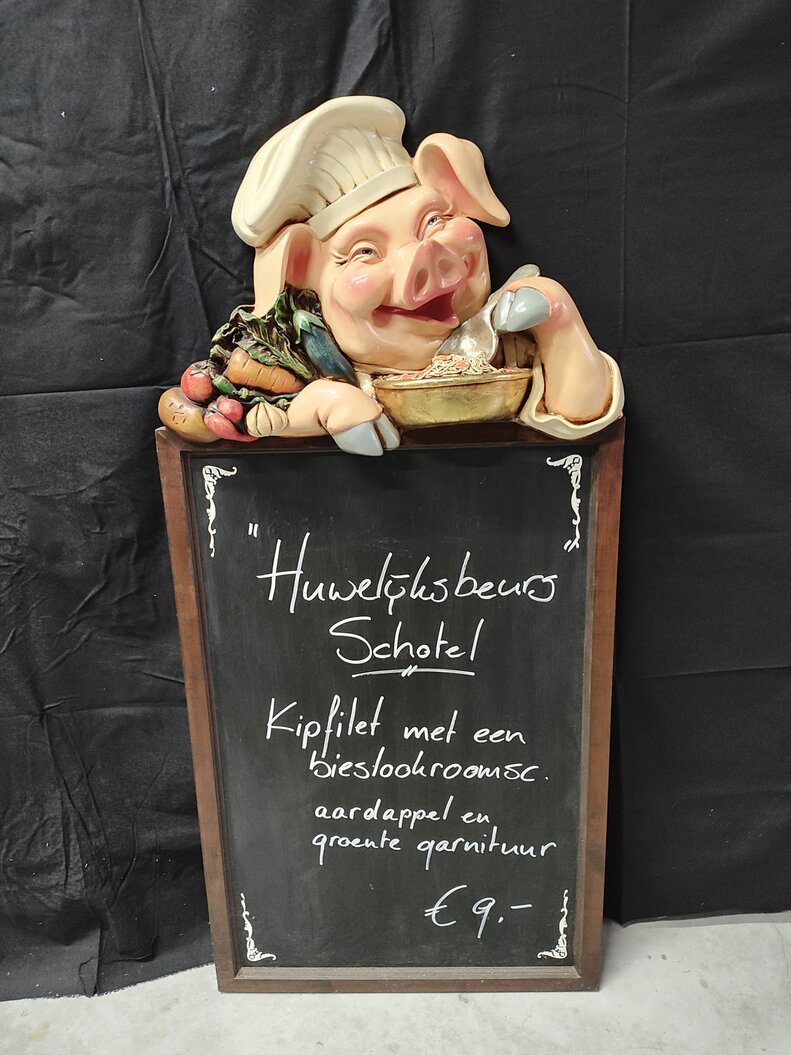 "Huwelijksbeurs
Schotel
Kipfilet met een
bieslookroomsc.
aardappel en
groente garnituur
€ 9.-